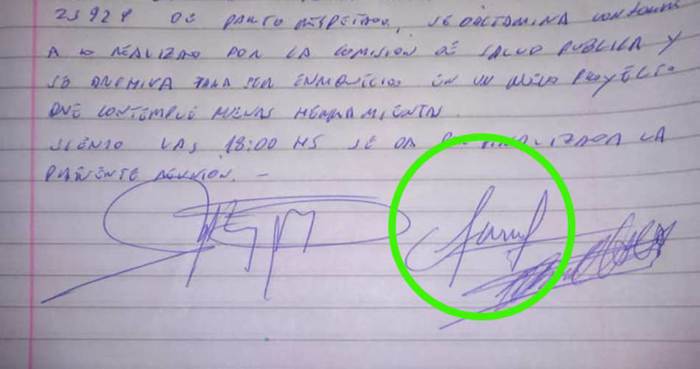 DE PARTO RESPETADO, SE DICTAMINA CONFORME
A LO REALIZADO POR LA COMISION DE SALUD PUBLICA Y
SE ARCHIVA PARA SER EN UN NUEVO PROYECTO
QUE CONTEMPLE NUEVAS HERRAMIENTAS
SIENDO LAS 18:00 HS SE DA POR FINALIZADA LA
PRESENTE REUNION. -